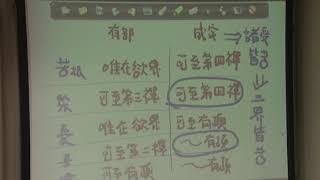 有部 成實 ⇒諸受皆苦
苦根 唯在欲界 可至第四禪
樂 可至第三禪 可至第四禪
憂 唯在欲界 可至有頂
喜 可至第二禪 ～有頂
可至有頂 ～有頂
三界皆苦